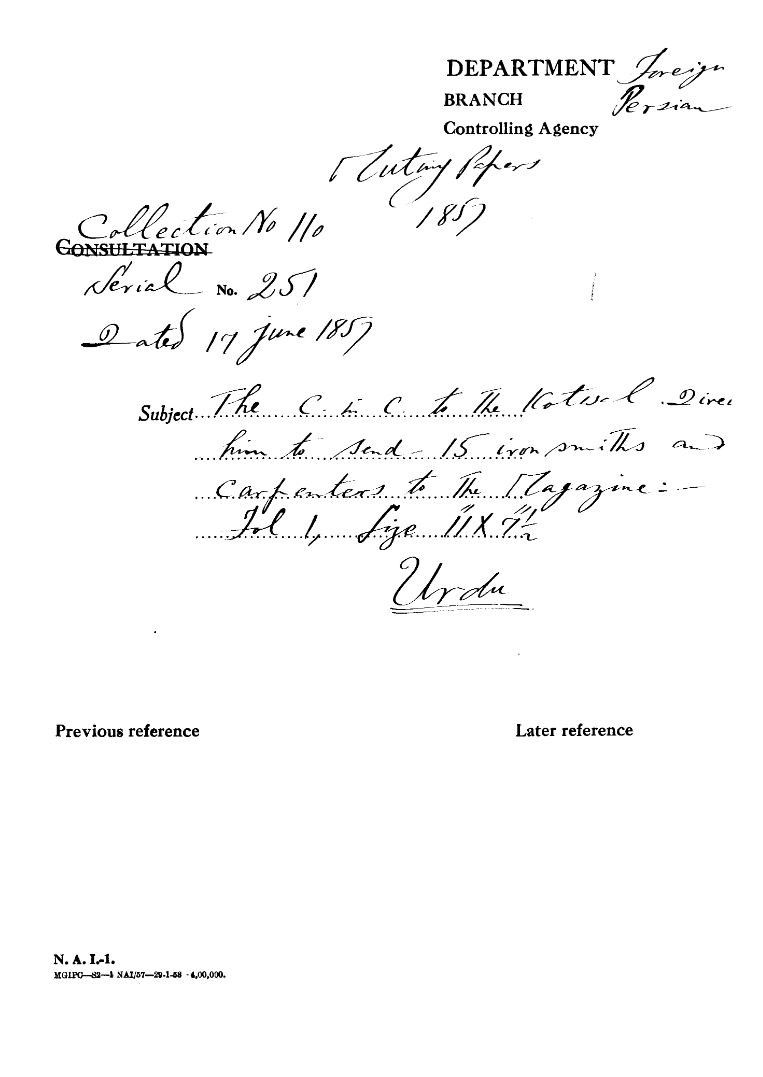 DEPARTMENT Foreign
BRANCH Persian
Controlling Agency
Mutiny Papers
1857
Collection No 110
CONSULTATION
Serial No. 251
Dated 17 June 1857
Subject The C in C to the Kotwal Direc
him to send - 15 iron smiths and
Carpenters to the Magazine : -
Fol 1, Size 11" X 7½"
Urdu
Previous reference Later reference
N. A. I.-1.
MGIPC—S2—4 NAI/57—29-1-58 - 4,00,000.